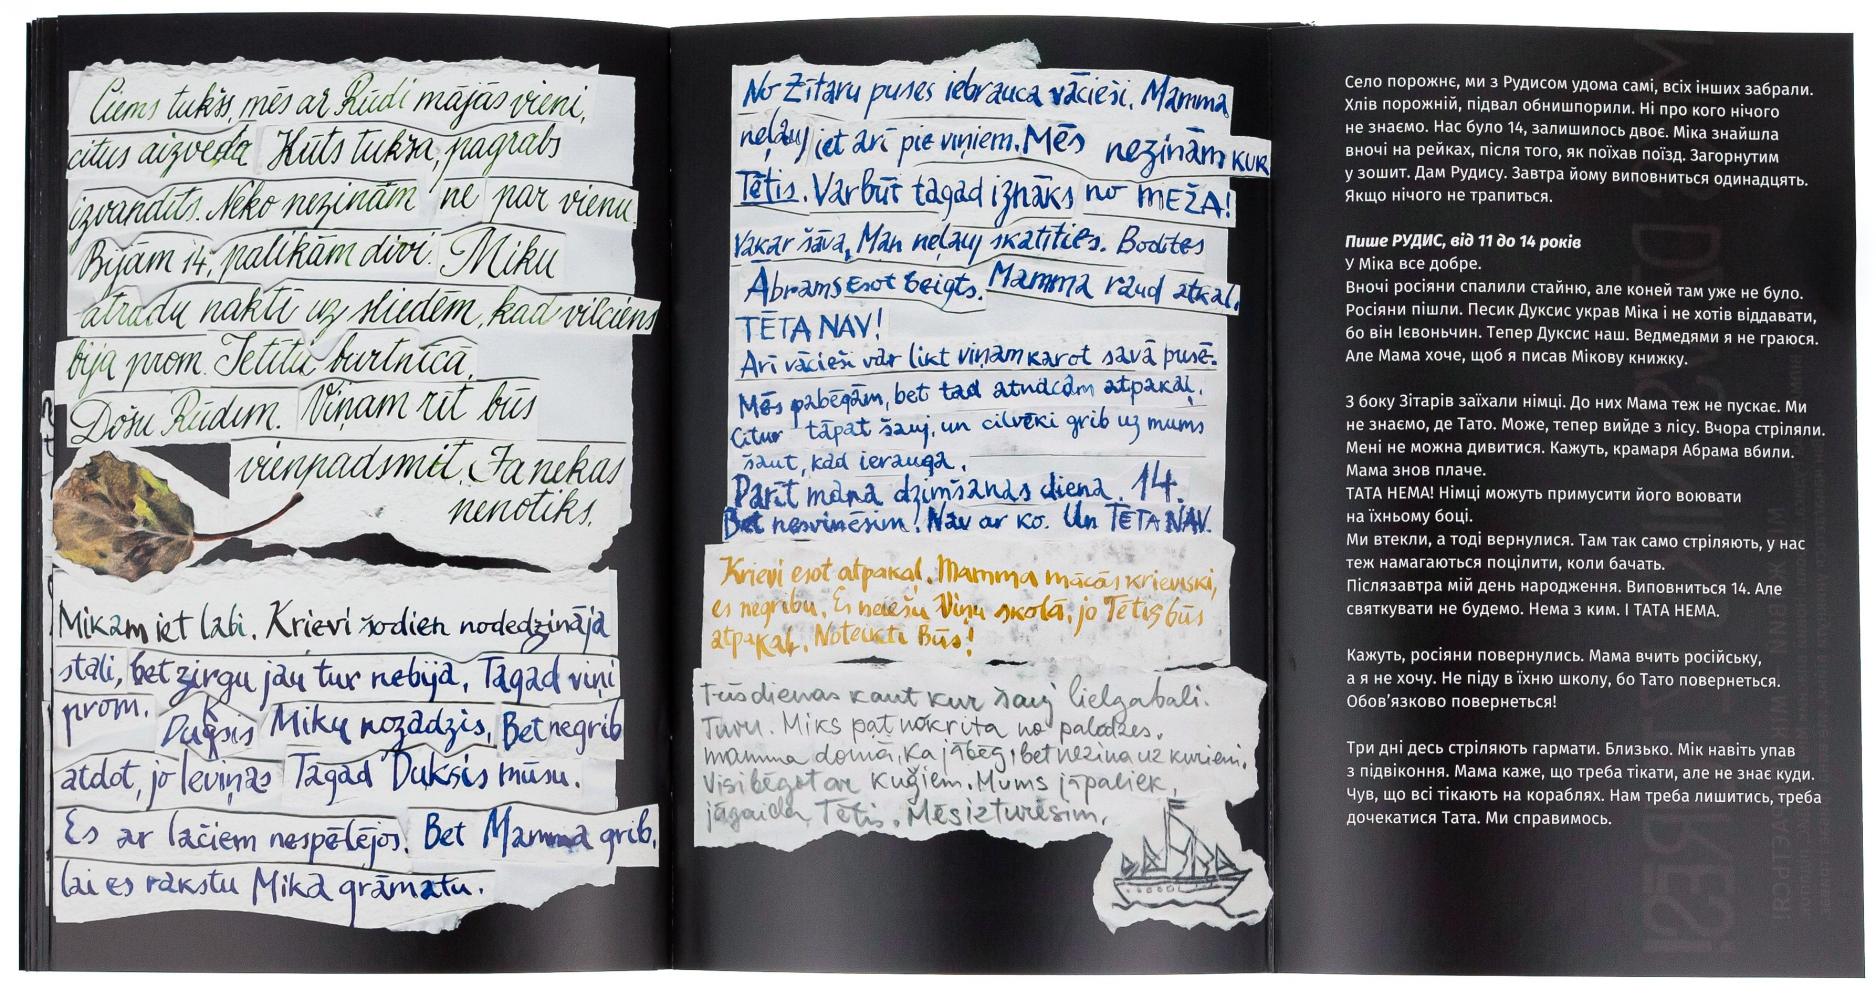 Ciems tukšs, mēs ar Rūdi mājās vieni,
citus aizveda. Kūts tukša, pagrabs
izvandīts. Neko nezinām ne par vienu.
Bijām 14, palikām divi. Miku
atradu naktī uz sliedēm, kad vilciens
bija prom. Ietītu burtnīcā.
Došu Rūdim. Viņam rīt būs
vienpadsmit. Ja nekas
nenotiks.
Mikam iet labi. Krievi šodien nodedzināja
stali, bet zirgu jau tur nebija. Tagad viņi
prom. Duksis Miku nozadzis. Bet negrib
atdot, jo Ieviņas Tagad Duksis mūsu.
Es ar lāčiem nespēlējos. Bet Mamma grib,
lai es rakstu Mika grāmatu.
No Zītaru puses iebrauca vācieši. Mamma
neļauj iet arī pie viņiem. Mēs nezinām KUR
Tētis. Varbūt tagad iznāks no MEŽA!
Vakar šāva. Man neļauj skatīties. Bodītes
Ābrams esot beigts. Mamma raud atkal.
TĒTA NAV!
Arī vācieši var likt viņam karot savā pusē.
Mēs pabēgām, bet tad atnācām atpakaļ.
Citur tāpat šauj, un cilvēki grib uz mums
šaut, kad ierauga.
Parīt mana dzimšanas diena. 14.
Bet nesvinēsim! Nav ar ko. Un TĒTA NAV.
Krievi esot atpakaļ. Mamma mācās krieviski,
es negribu. Es neiešu Viņu skolā, jo Tētis būs
atpakaļ. Noteikti Būs!
Trīs dienas kaut kur šauj lielgabali.
Tuvu. Miks pat nokrita no palodzes.
mamma domā, ka jābēg, bet nezina uz kurieni.
Visi bēgot ar kuģiem. Mums jāpaliek,
jāgaida Tētis. Mēs izturēsim.
Село порожнє, ми з Рудисом удома самі, всіх інших забрали.
Хлів порожній, підвал обнишпорили. Ні про кого нічого
не знаємо. Нас було 14, залишилось двоє. Міка знайшла
вночі на рейках, після того, як поїхав поїзд. Загорнутим
у зошит. Дам Рудису. Завтра йому виповниться одинадцять.
Якщо нічого не трапиться.
Пише РУДИС, від 11 до 14 років
У Міка все добре.
Вночі росіяни спалили стайню, але коней там уже не було.
Росіяни пішли. Песик Дуксис украв Міка і не хотів віддавати,
бо він Ієвоньчин. Тепер Дуксис наш. Ведмедями я не граюся.
Але Мама хоче, щоб я писав Мікову книжку.
З боку Зітарів заїхали німці. До них Мама теж не пускає. Ми
не знаємо, де Тато. Може, тепер вийде з лісу. Вчора стріляли.
Мені не можна дивитися. Кажуть, крамаря Абрама вбили.
Мама знов плаче.
ТАТА НЕМА! Німці можуть примусити його воювати
на їхньому боці.
Ми втекли, а тоді вернулися. Там так само стріляють, у нас
теж намагаються поцілити, коли бачать.
Післязавтра мій день народження. Виповниться 14. Але
святкувати не будемо. Нема з ким. І ТАТА НЕМА.
Кажуть, росіяни повернулись. Мама вчить російську,
а я не хочу. Не піду в їхню школу, бо Тато повернеться.
Обов’язково повернеться!
Три дні десь стріляють гармати. Близько. Мік навіть упав
з підвіконня. Мама каже, що треба тікати, але не знає куди.
Чув, що всі тікають на кораблях. Нам треба лишитись, треба
дочекатися Тата. Ми справимось.